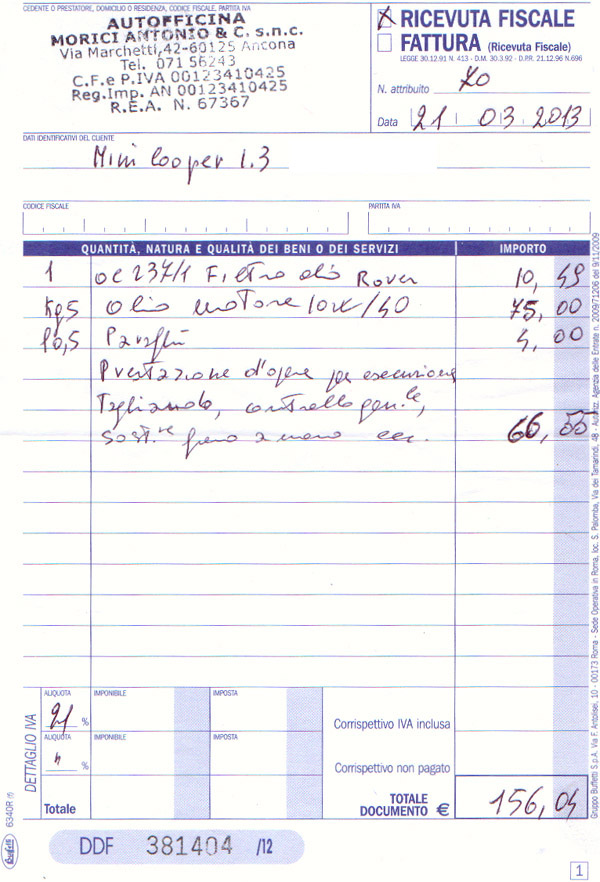 CEDENTE O PRESTATORE, DOMICILIO O RESIDENZA, CODICE FISCALE, PARTITA IVA
AUTOFFICINA
MORICI ANTONIO & C. s.n.c.
Via Marchetti, 42-60125 Ancona
Tel. 071 56243
C.F. e P.IVA 00123410425
Reg.Imp. AN 00123410425
R.E.A. N. 67367
X RICEVUTA FISCALE
FATTURA (Ricevuta Fiscale)
LEGGE 30.12.91 N. 413 - D.M. 30.3.92 - D.P.R. 21.12.96 N.696
N. attribuito 70
Data 21 03 2013
DATI IDENTIFICATIVI DEL CLIENTE
Mini Cooper 1.3
CODICE FISCALE
PARTITA IVA
QUANTITÀ, NATURA E QUALITÀ DEI BENI O DEI SERVIZI IMPORTO
1 OC 237/1 Filtro olio Rover 10,49
Kg5 olio motore 10W/40 75,00
P0,5 Paraflù 4,00
Prestazione d'opera per esecuzione
Tagliando, controllo gen.le,
sost.ne freno a mano ecc. 66,55
DETTAGLIO IVA
ALIQUOTA IMPONIBILE IMPOSTA
21 %
Corrispettivo IVA inclusa
ALIQUOTA IMPONIBILE IMPOSTA
%
Corrispettivo non pagato
Totale
TOTALE DOCUMENTO € 156,04
DDF 381404 /12
1
6340R (f)
Buffetti
Gruppo Buffetti S.p.A. Via F. Antolisei, 10 - 00173 Roma - Sede Operativa in Roma, loc. S. Palomba, Via dei Tamarindi, 48 - Autorizz. Agenzia delle Entrate n. 2009/71206 del 9/11/2009